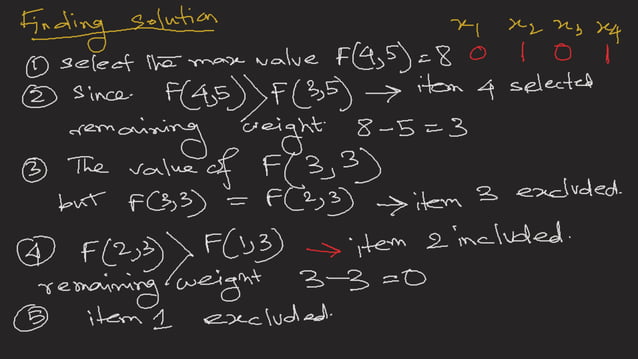 Finding solution
x1 x2 x3 x4
① select the max value F(4,5)=8 0 1 0 1
② since F(4,5)>F(3,5) → item 4 selected
remaining weight 8-5=3
③ The value of F(3,3)
but F(3,3) = F(2,3) → item 3 excluded.
④ F(2,3)>F(1,3) → item 2 included.
remaining weight 3-3=0
⑤ item 1 excluded.